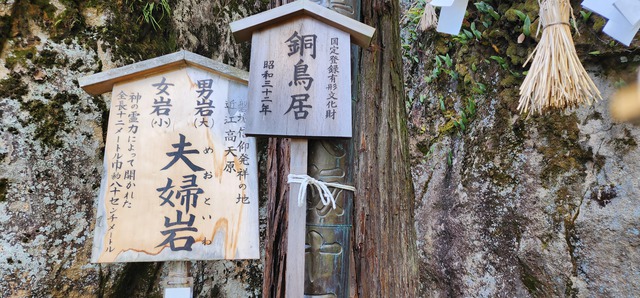 国登録有形文化財
銅鳥居
昭和三十二年
信仰発祥の地
近江高天原
男岩(大)
めおといわ
夫婦岩
女岩(小)
神の霊力によって開かれた
全長十二メートル巾約八十センチメートル